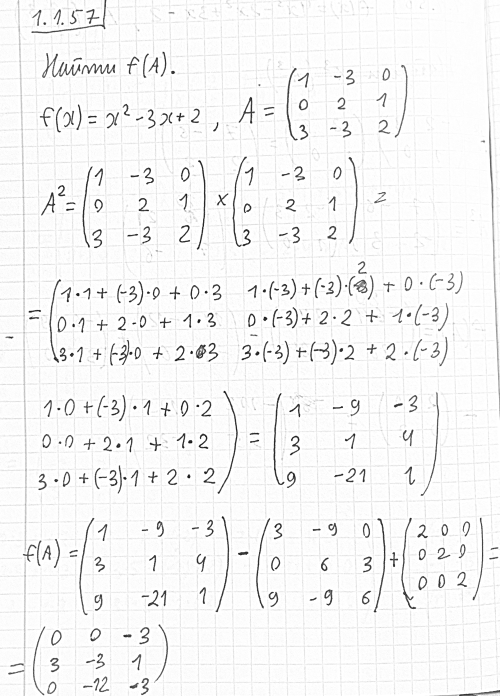 1.1.57
Найти f(A).
f(x) = x² - 3x + 2 , A = (1 -3 0
0 2 1
3 -3 2)
A² = (1 -3 0
0 2 1
3 -3 2) × (1 -3 0
0 2 1
3 -3 2) =
= (1·1 + (-3)·0 + 0·3 1·(-3) + (-3)·2 + 0·(-3)
0·1 + 2·0 + 1·3 0·(-3) + 2·2 + 1·(-3)
3·1 + (-3)·0 + 2·3 3·(-3) + (-3)·2 + 2·(-3)
1·0 + (-3)·1 + 0·2
0·0 + 2·1 + 1·2
3·0 + (-3)·1 + 2·2) = (1 -9 -3
3 1 4
9 -21 1)
f(A) = (1 -9 -3
3 1 4
9 -21 1) - (3 -9 0
0 6 3
9 -9 6) + (2 0 0
0 2 0
0 0 2) =
= (0 0 -3
3 -3 1
0 -12 -3)